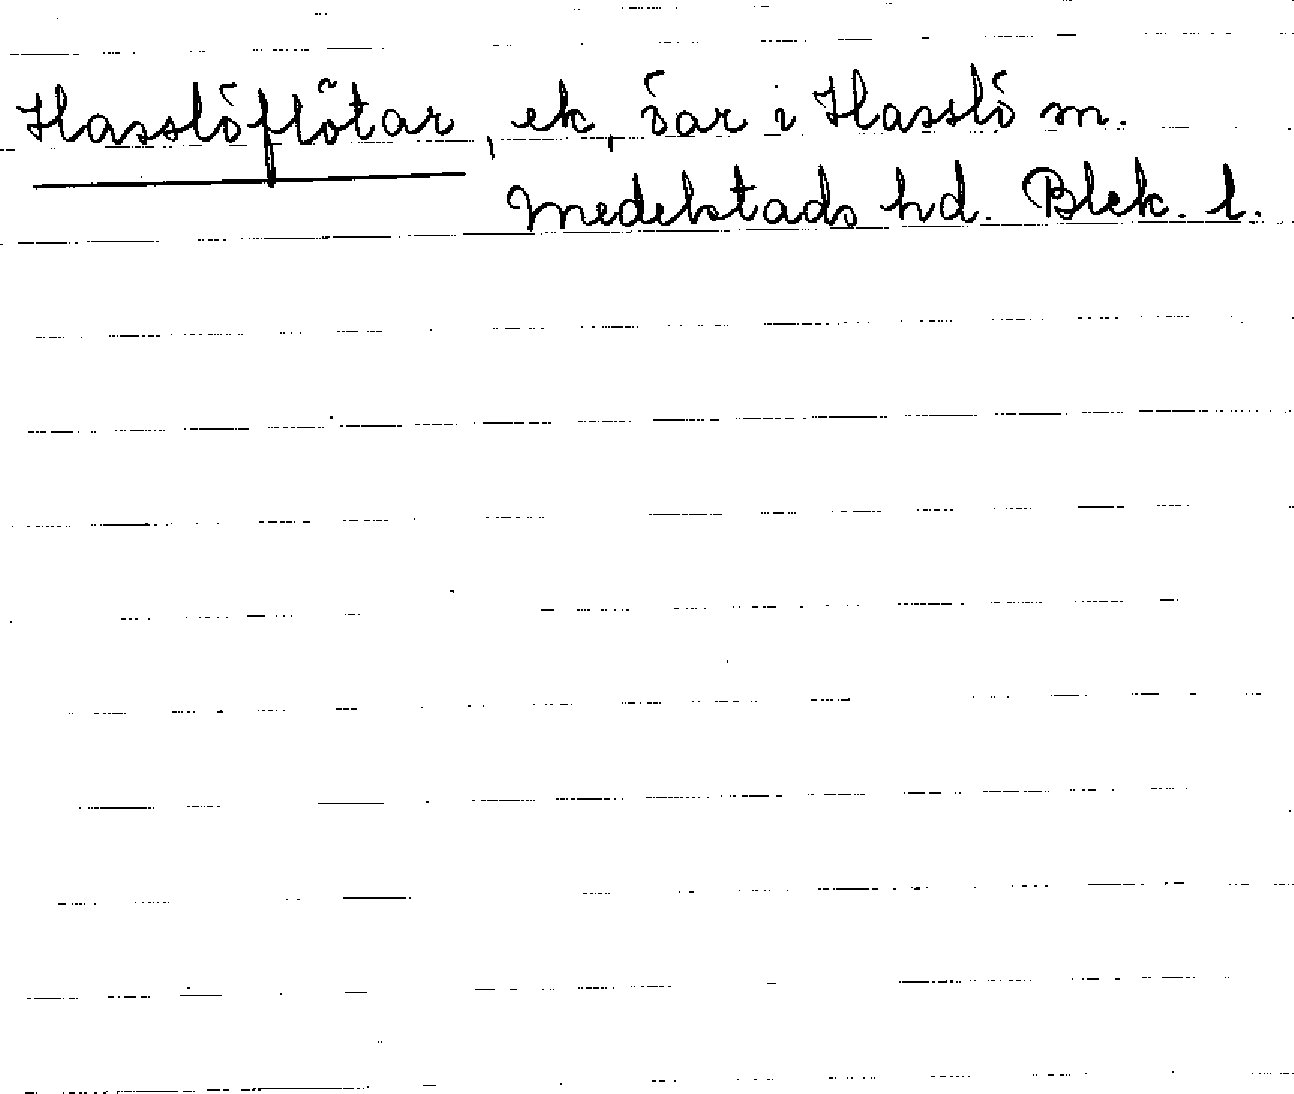 Hasslöflötar, ek, öar i Hasslö sn.
Medelstads hd. Blek. l.